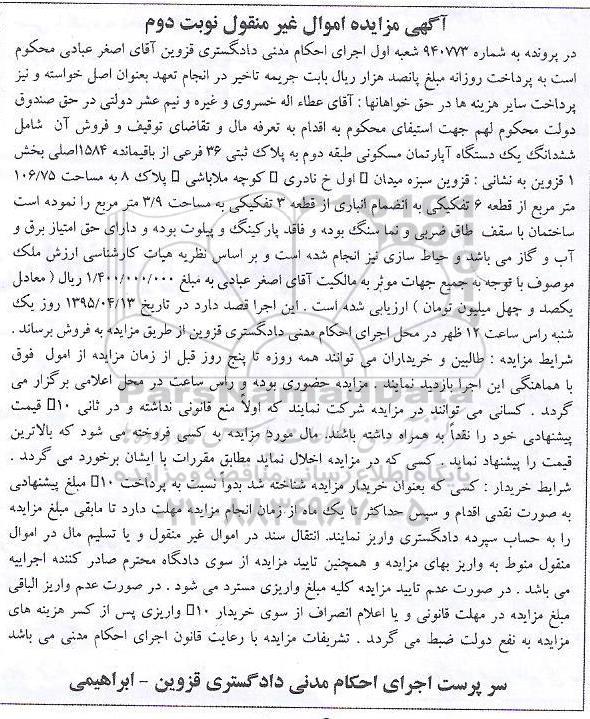 آگهی مزایده اموال غیر منقول نوبت دوم
در پرونده به شماره ۹۴۰۷۷۳ شعبه اول اجرای احکام مدنی دادگستری قزوین آقای اصغر عبادی محکوم
است به پرداخت روزانه مبلغ پانصد هزار ریال بابت جریمه تاخیر در انجام تعهد بعنوان اصل خواسته و نیز
پرداخت سایر هزینه ها در حق خواهانها : آقای عطاء اله خسروی و غیره و نیم عشر دولتی در حق صندوق
دولت محکوم لهم جهت استیفای محکوم به اقدام به تعرفه مال و تقاضای توقیف و فروش آن شامل
ششدانگ یک دستگاه آپارتمان مسکونی طبقه دوم به پلاک ثبتی ۳۶ فرعی از باقیمانده ۱۵۸۴اصلی بخش
۱ قزوین به نشانی : قزوین سبزه میدان اول خ نادری کوچه ملاباشی پلاک ۸ به مساحت ۱۰۶/۷۵
متر مربع از قطعه ۶ تفکیکی به انضمام انباری از قطعه ۳ تفکیکی به مساحت ۳/۹ متر مربع را نموده است
ساختمان با سقف طاق ضربی و نما سنگ بوده و فاقد پارکینگ و پیلوت بوده و دارای حق امتیاز برق و
آب و گاز می باشد و حیاط سازی نیز انجام شده است و بر اساس نظریه هیات کارشناسی ارزش ملک
موصوف با توجه به جمیع جهات موثر به مالکیت آقای اصغر عبادی به مبلغ ۱/۴۰۰/۰۰۰/۰۰۰ ریال ( معادل
یکصد و چهل میلیون تومان ) ارزیابی شده است . این اجرا قصد دارد در تاریخ ۱۳۹۵/۰۴/۱۳ روز یک
شنبه راس ساعت ۱۲ ظهر در محل اجرای احکام مدنی دادگستری قزوین از طریق مزایده به فروش برساند .
شرایط مزایده : طالبین و خریداران می توانند همه روزه تا پنج روز قبل از زمان مزایده از امول فوق
با هماهنگی این اجرا بازدید نمایند . مزایده حضوری بوده و راس ساعت در محل اعلامی برگزار می
گردد . کسانی می توانند در مزایده شرکت نمایند که اولاً منع قانونی نداشته و در ثانی ۱۰ قیمت
پیشنهادی خود را نقداً به همراه داشته باشند. مال مورد مزایده به کسی فروخته می شود که بالاترین
قیمت را پیشنهاد نماید . کسی که در مزایده اخلال نماید مطابق مقررات با ایشان برخورد می گردد .
شرایط خریدار : کسی که بعنوان خریدار مزایده شناخته شد بدواً نسبت به پرداخت ۱۰ مبلغ پیشنهادی
به صورت نقدی اقدام و سپس حداکثر تا یک ماه از زمان انجام مزایده مهلت دارد تا مابقی مبلغ مزایده
را به حساب سپرده دادگستری واریز نمایند. انتقال سند در اموال غیر منقول و یا تسلیم مال در اموال
منقول منوط به واریز بهای مزایده و همچنین تایید مزایده از سوی دادگاه محترم صادر کننده اجراییه
می باشد . در صورت عدم تایید مزایده کلیه مبلغ واریزی مسترد می شود . در صورت عدم واریز الباقی
مبلغ مزایده در مهلت قانونی و یا اعلام انصراف از سوی خریدار ۱۰ واریزی پس از کسر هزینه های
مزایده به نفع دولت ضبط می گردد . تشریفات مزایده با رعایت قانون اجرای احکام مدنی می باشد
سر پرست اجرای احکام مدنی دادگستری قزوین - ابراهیمی